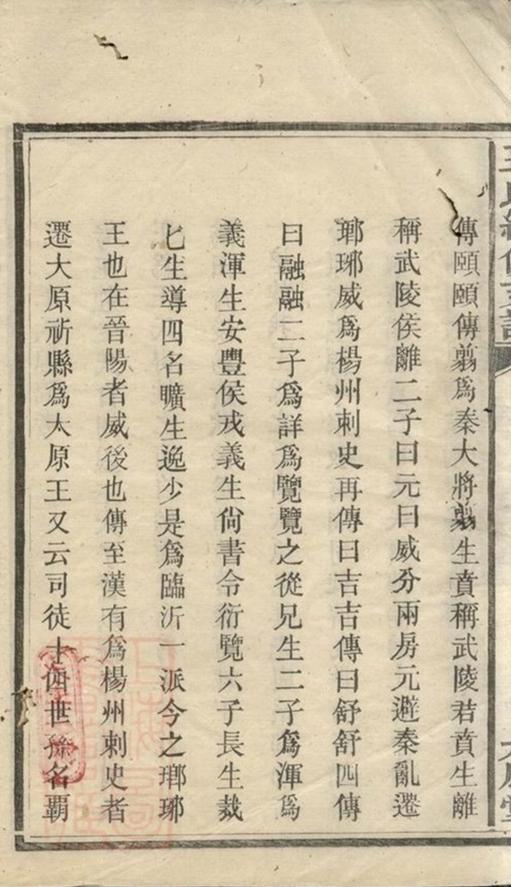 傳頤頤傳翦爲秦大將翦生賁稱武陵君賁生離
稱武陵侯離二子曰元曰威分兩房元避秦亂遷
瑯琊威爲楊州刺史再傳曰吉吉傳曰舒舒四傳
曰融融二子爲詳爲覽覽之從兄生二子爲渾爲
義渾生安豐侯戎義生尙書令衍覽六子長生裁
匕生導四名曠生逸少是爲臨沂一派今之瑯琊
王也在晉陽者威後也傳至漢有爲楊州刺史者
遷大原祈縣爲大原王又云司徒十四世孫名覇